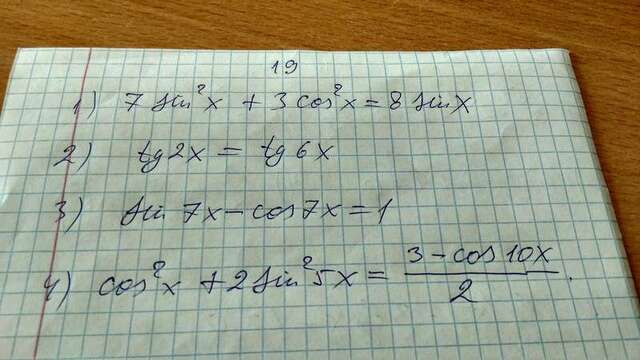 19
1) 7 sin²x + 3 cos²x = 8 sinx
2) tg2x = tg6x
3) sin 7x - cos7x = 1
4) cos²x + 2 sin²5x = (3 - cos10x)/2.